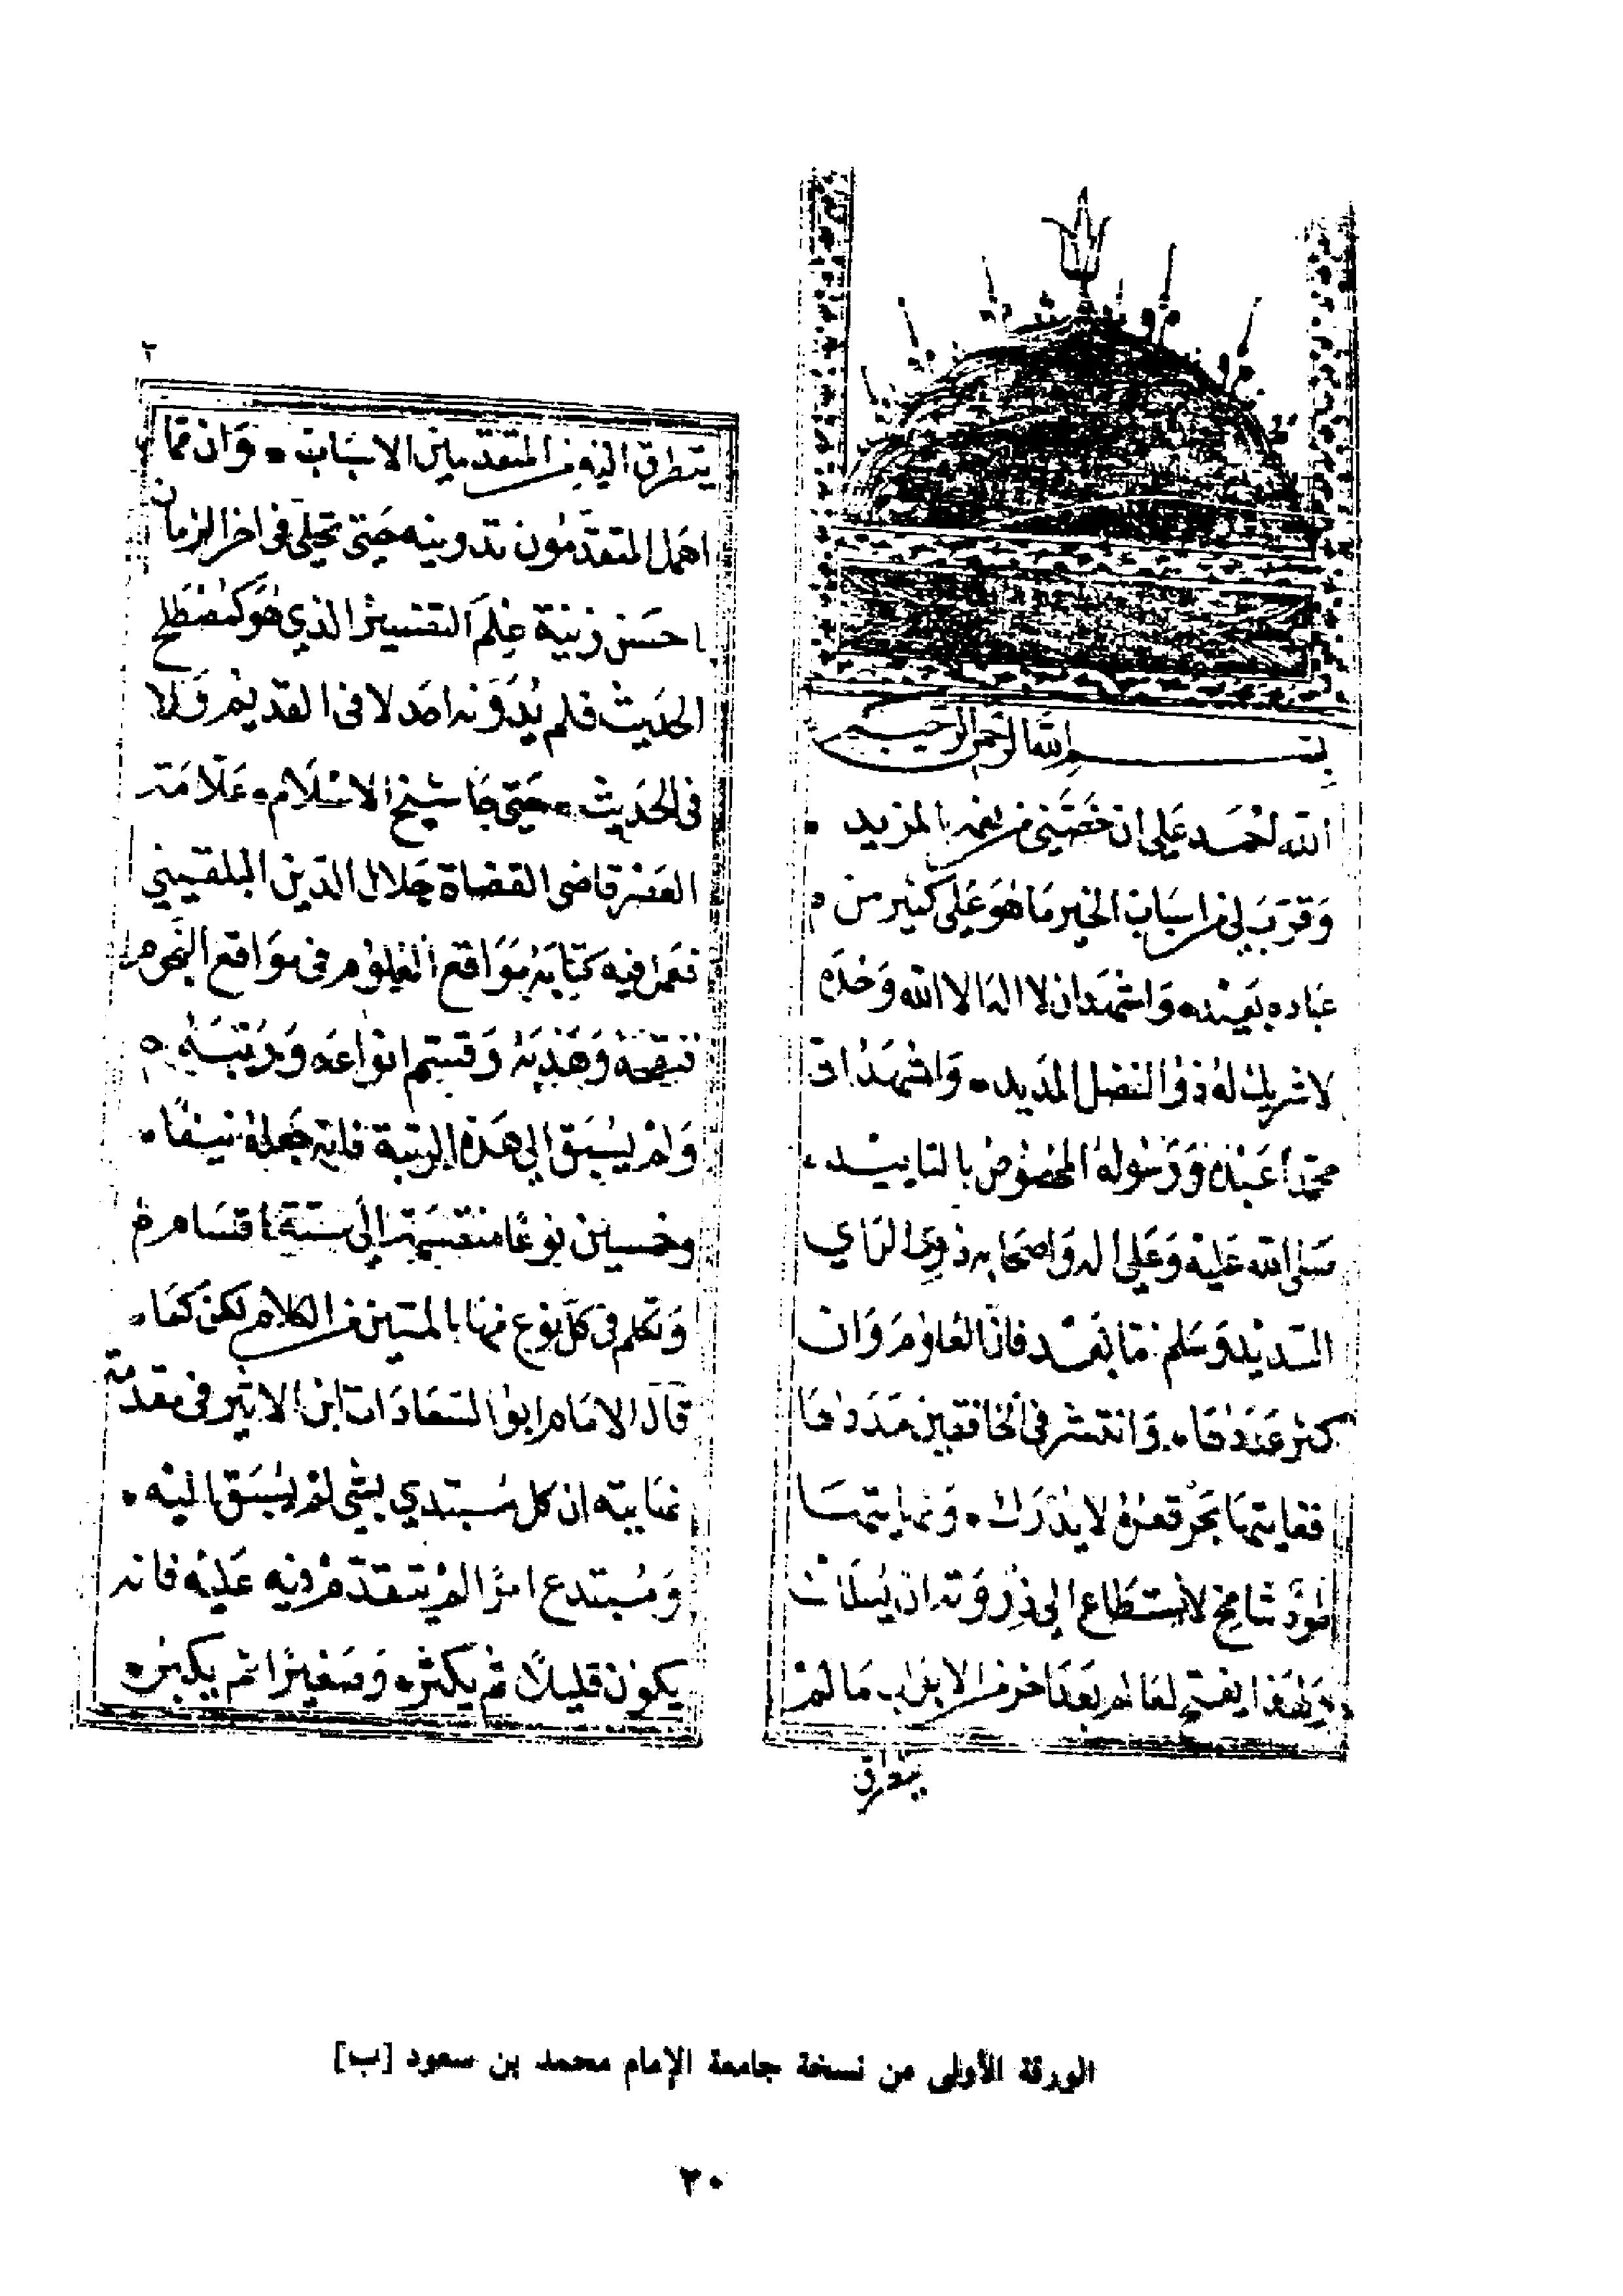 بسم الله الرحمن الرحيم
الله احمد على ان خصني من نعمه بالمزيد
وقرب لي من اسباب الخير ما هو على كثير من
عباده بعيد واشهد ان لا اله الا الله وحده
لا شريك له ذو الفضل المديد واشهد ان
محمدا عبده ورسوله المخصوص بالتاييد
صلى الله عليه وعلى اله واصحابه ذوي الراي
السديد وسلم اما بعد فان العلوم وان
كثر عددها وانتشر في الخافقين مددها
فغايتها بحر قعره لا يدرك ونهايتها
طود شامخ لا يستطاع الى ذروته ان يسلك
ولهذا يفتح لعالم بعد اخر من الابواب ما لم
يتطرق
٢
يتطرق اليه من المتقدمين الاسباب وان مما
اهمل المتقدمون تدوينه حتى تحلى في اخر الزمان
باحسن زينة علم التفسير الذي هو كمصطلح
الحديث فلم يدونه احد لا في القديم ولا
في الحديث حتى جا شيخ الاسلام علامة
العصر قاضي القضاة جلال الدين البلقيني
فعمل فيه كتابه مواقع العلوم في مواقع النجوم
فنقحه وهذبه وقسم انواعه ورتبه
ولم يسبق الى هذه الرتبة فانه جعله نيفا
وخمسين نوعا منقسمة الى ستة اقسام
وتكلم في كل نوع منها بالمتين من الكلام لكن كما
قال الامام ابو السعادات ابن الاثير في مقدمة
نهايته ان كل مبتدي بشي لم يسبق اليه
ومبتدع امرا لم يتقدم فيه عليه فانه
يكون قليلا ثم يكثر وصغيرا ثم يكبر
الورقة الأولى من نسخة جامعة الإمام محمد بن سعود [ب]
٢٠